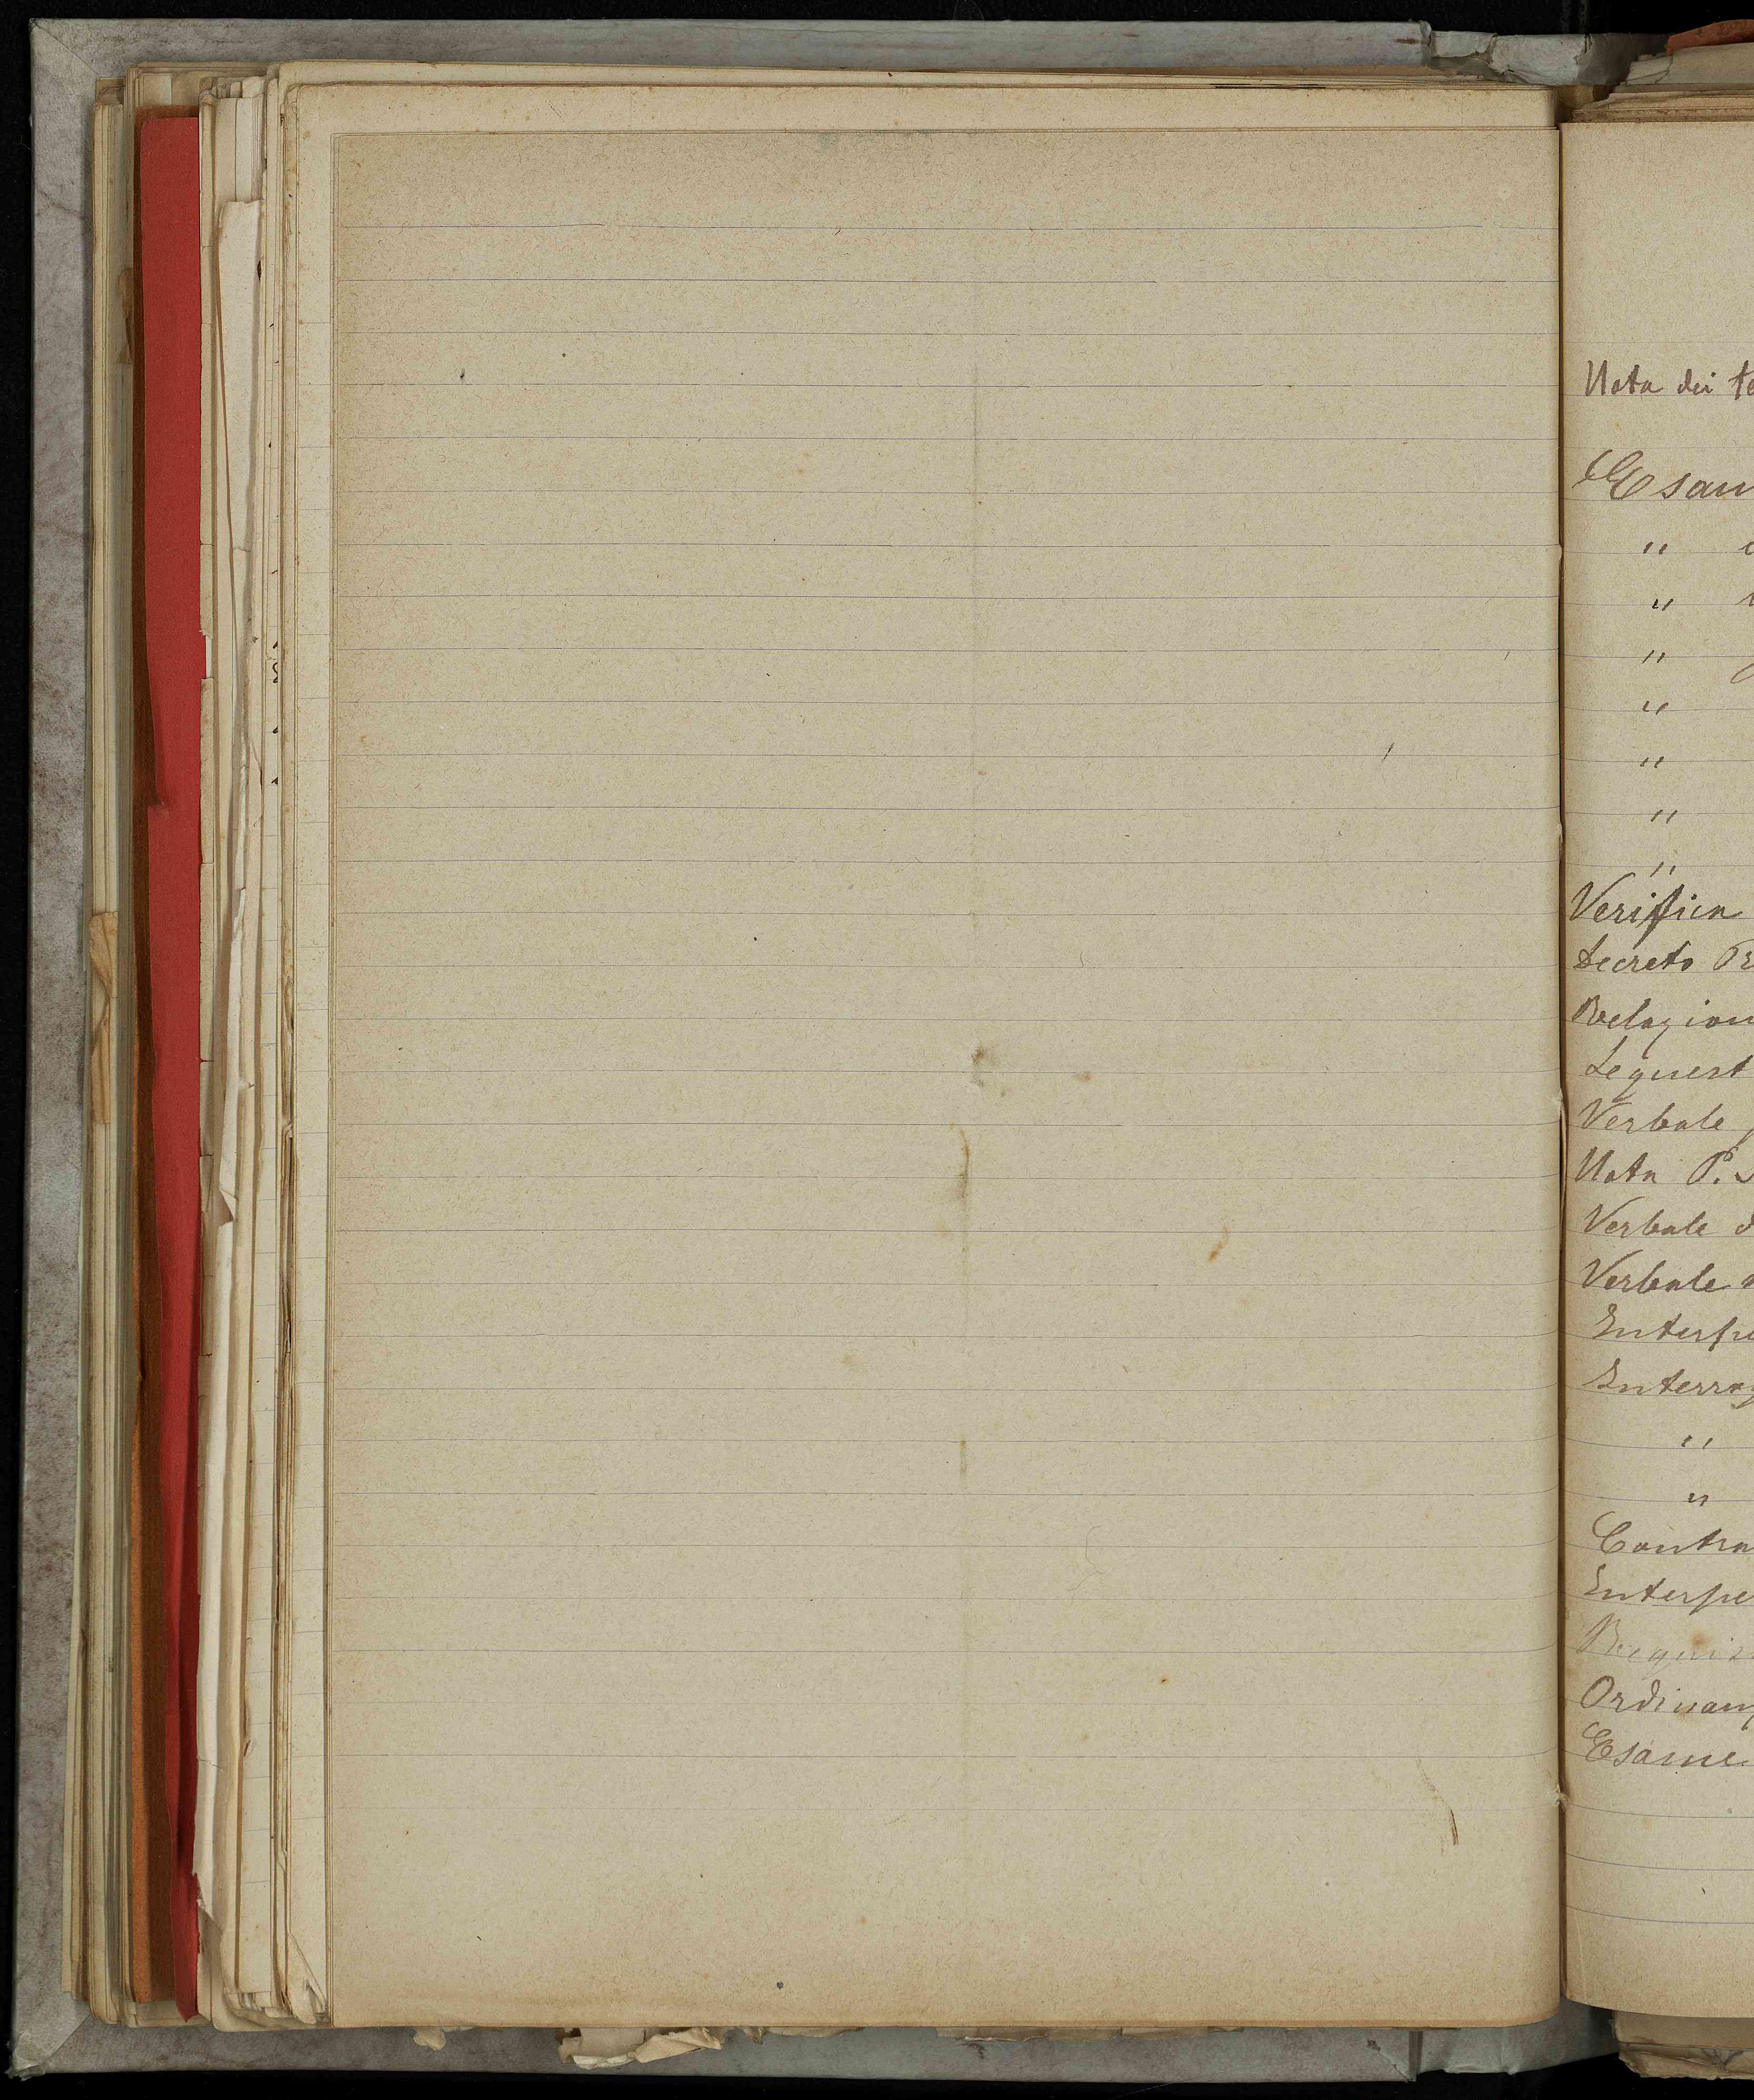 Nota dei te
Esam
"
"
"
"
"
"
"
Verifica
Decreto Pr
Relazion
Sequest
Verbale
Nota P. S
Verbale d
Verbale
Interpe
Interrog
"
"
Contra
Interpe
Requis
Ordinanz
Esame